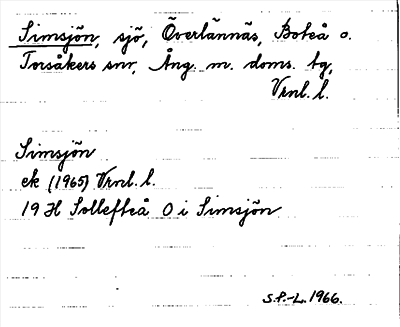 Simsjön, sjö, Överlännäs, Boteå o.
Torsåkers snr, Ång. m. doms. tg,
Vrnl. l.
Simsjön
ek (1965) Vrnl. l.
19 H Sollefteå O i Simsjön
S.P.-L. 1966.